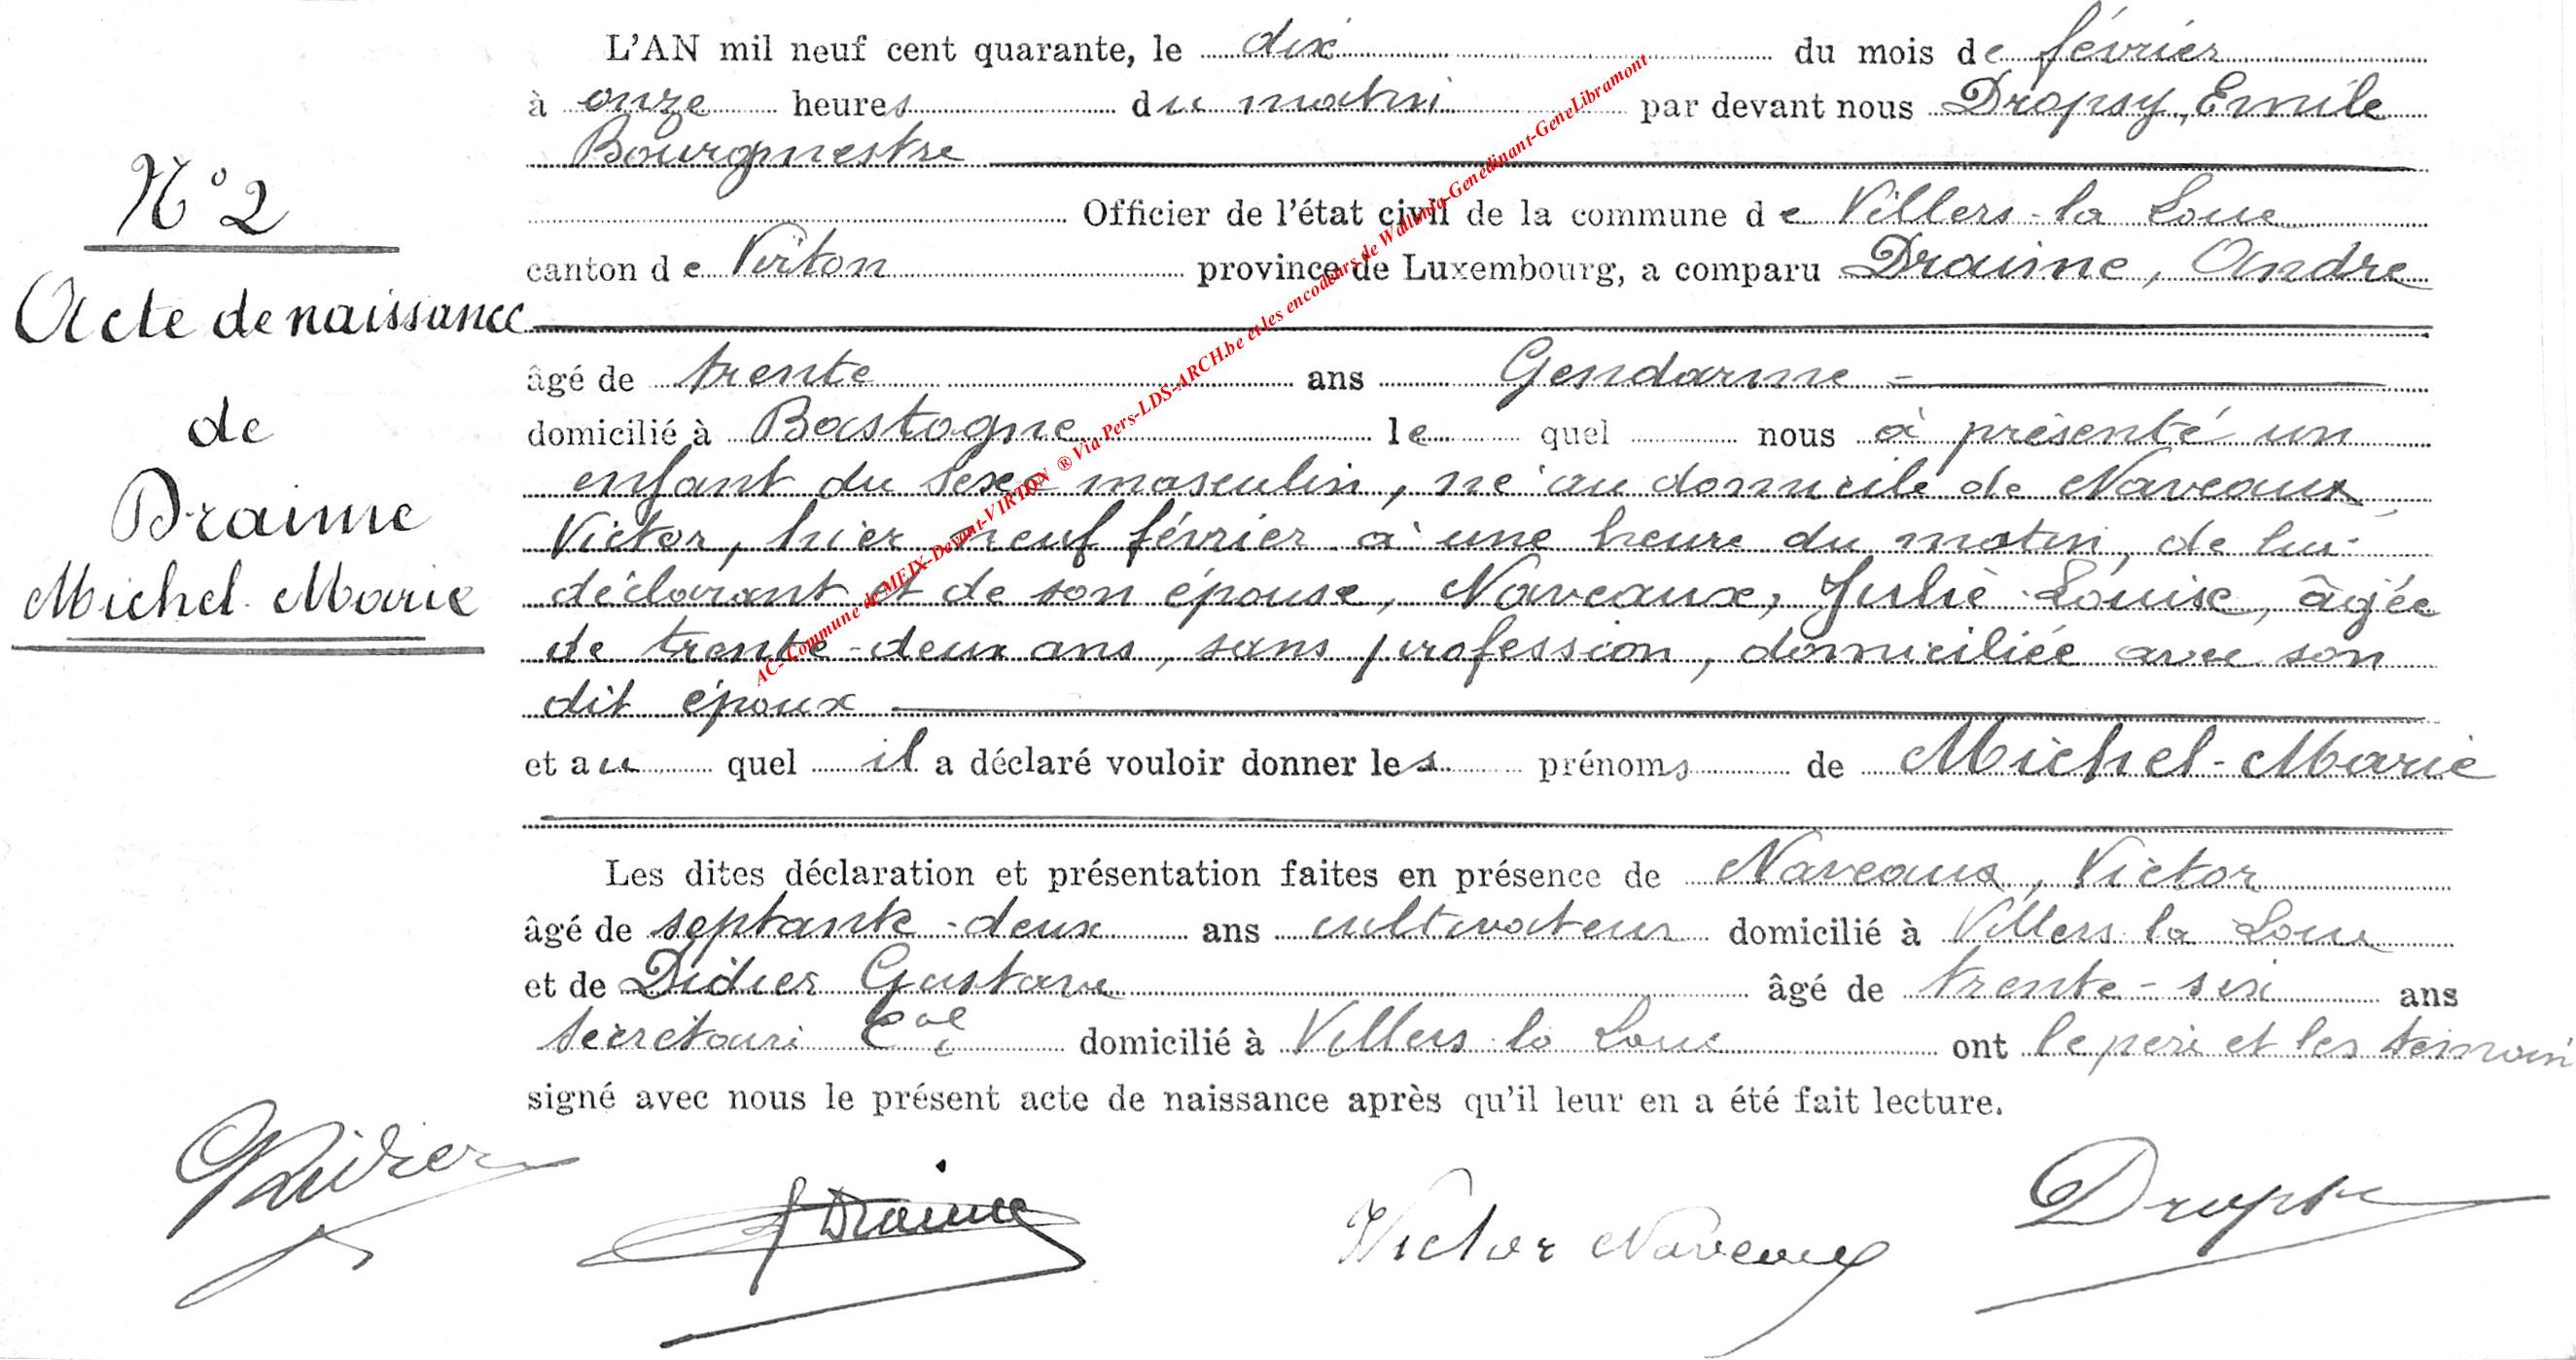 L'AN mil neuf cent quarante, le dix du mois de février
à onze heures du matin par devant nous Dropsy, Emile
Bourgmestre
N° 2
Officier de l'état civil de la commune de Villers-la Loue
canton de Virton province de Luxembourg, a comparu Draime, Andre
Acte de naissance
âgé de trente ans Gendarme
de
domicilié à Bastogne lequel nous à présenté un
enfant du sexe masculin, né au domicile de Naveaux
Draime
Victor, hier neuf février à une heure du matin, de lui
Michel-Marie
déclarant et de son épouse, Naveaux, Julie-Louise, âgée
de trente-deux ans, sans profession, domiciliée avec son
dit époux
et au quel il a déclaré vouloir donner les prénoms de Michel-Marie
Les dites déclaration et présentation faites en présence de Naveaux, Victor
âgé de septante-deux ans cultivateur domicilié à Villers la Loue
et de Didier Gustave âgé de trente-six ans
secrétaire Cal domicilié à Villers la Loue ont le père et les témoin
signé avec nous le présent acte de naissance après qu'il leur en a été fait lecture.
GDidier
Draime
Victor Naveaux
Dropsy
AC-Commune de MEIX-Devant-VIRTON ® Via Pers-LDS-ARCH.be et les encodeurs de Wallonia-Genedinant-GeneLibramont